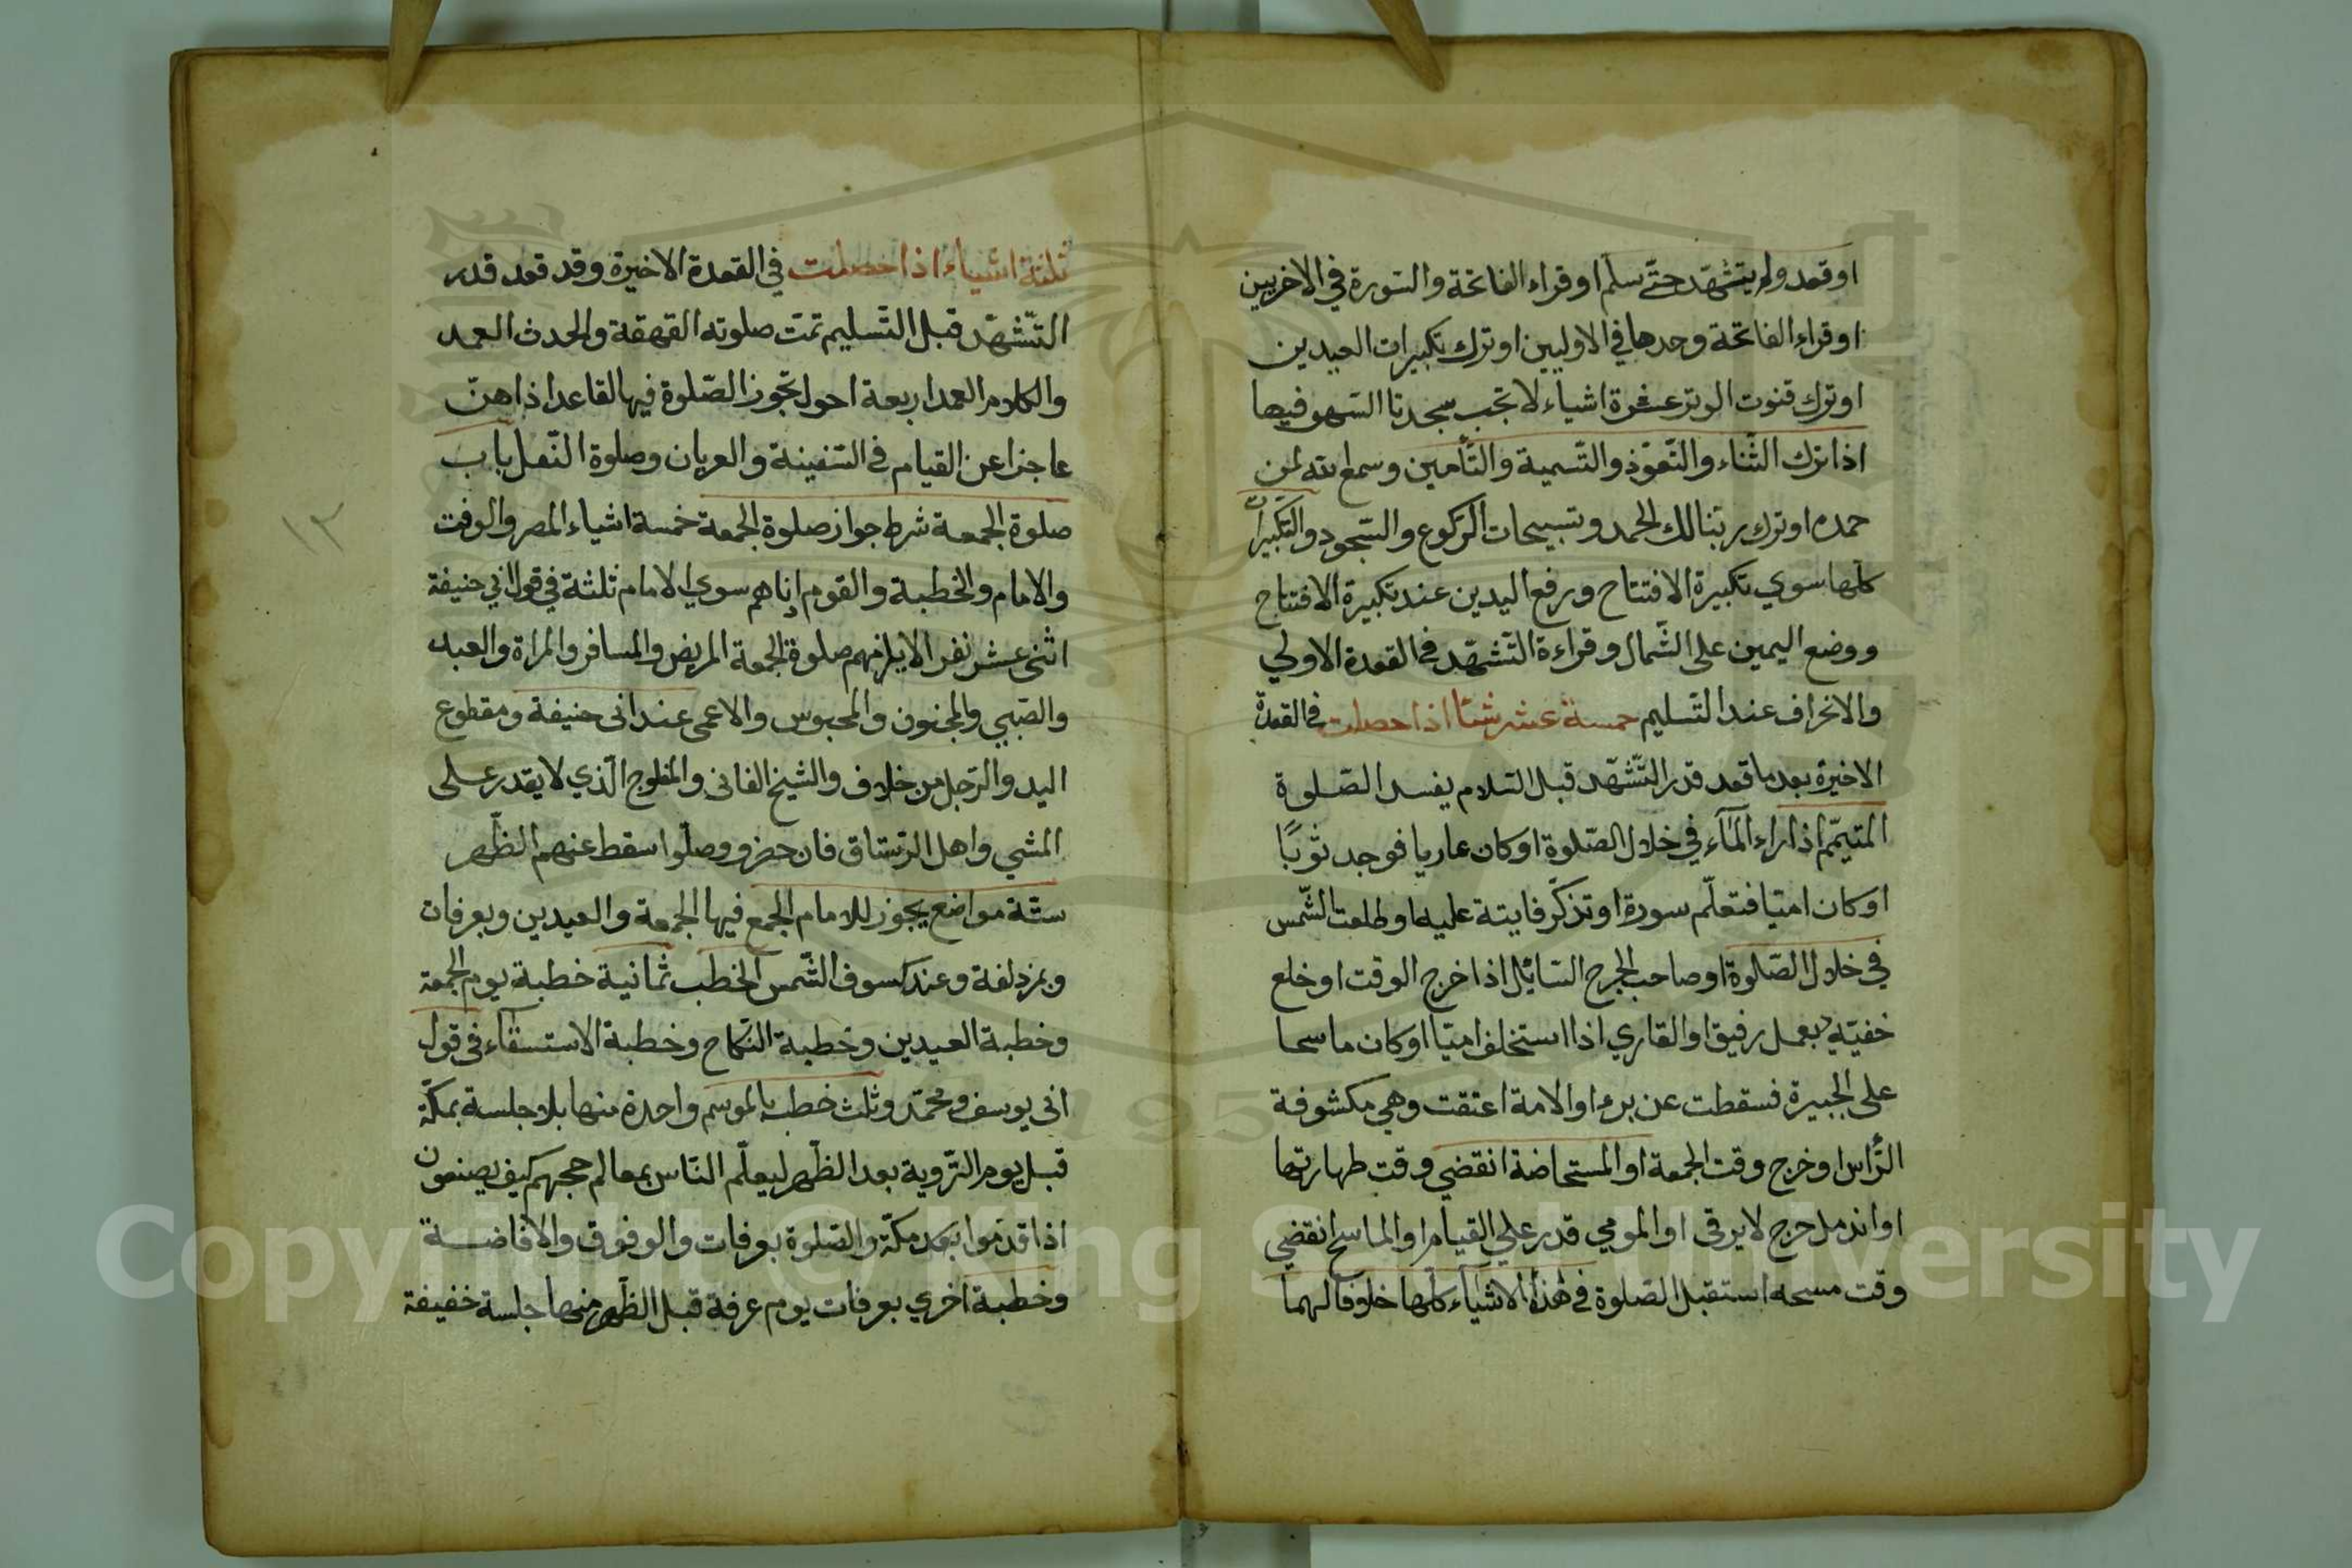 او قعد ولم يتشهّد حتّى سلّم او قراء الفاتحة والسّورة في الاخريين
او قراء الفاتحة وحدها في الاوليين او ترك تكبيرات العيدين
او ترك قنوت الوتر عشرة اشياء لا تجب سجدتا السّهو فيها
اذا ترك الثّناء والتّعوّذ والتّسمية والتّأمين وسمع الله لمن
حمده او ترك ربّنا لك الحمد وتسبيحات الرّكوع والسّجود والتّكبيرات
كلّها سوي تكبيرة الافتتاح ورفع اليدين عند تكبيرة الافتتاح
ووضع اليمين على الشّمال وقراءة التّشهّد في القعدة الاولي
والانحراف عند التّسليم خمسة عشر شيئا اذا حصلت في القعدة
الاخيرة بعد ما قعد قدر التّشهّد قبل السّلام يفسد الصّلوة
المتيمّم اذا راء المآء في خلال الصّلوة او كان عاريا فوجد ثوبًا
او كان اميّا فتعلّم سورة او تذكّر فايتة عليه او طلعت الشّمس
في خلال الصّلوة او صاحب الجرح السّائل اذا خرج الوقت او خلع
خفيّه بعمل رفيق او القاري اذا استخلف اميّا او كان ماسحا
على الجبيرة فسقطت عن برء او الامة اعتقت وهي مكشوفة
الرّأس او خرج وقت الجمعة او المستحاضة انقضي وقت طهارتها
او اندمل جرح لا يرقى او المومي قدر علي القيام او الماسح انقضي
وقت مسحه استقبل الصّلوة في هذه الاشياء كلّها خلافا لهما
ثلثة اشياء اذا حصلت في القعدة الاخيرة وقد قعد قدر
التّشهّد قبل التّسليم تمّت صلوته القهقهة والحدث العمد
والكلام العمد اربعة احول تجوز الصّلوة فيها القاعد اذا هنّ
عاجزا عن القيام في السّفينة والعريان وصلوة النّفل باب
صلوة الجمعة شرط جواز صلوة الجمعة خمسة اشياء المصر والوقت
والامام والخطبة والقوم ادناهم سوي الامام ثلثة في قول ابي حنيفة
اثنى عشر نفر الا يلزمهم صلوة الجمعة المريض والمسافر والمراة والعبد
والصّبي والمجنون والمحبوس والاعمى عند ابى حنيفة ومقطوع
اليد والرّجل من خلاف والشيخ الفانى والمفلوج الّذي لا يقدر على
المشي واهل الرّستاق فان حضروا وصلّوا سقط عنهم الظّهر
ستّة مواضع يجوز للامام الجمع فيها الجمعة والعيدين وبعرفات
وبمزدلفة وعند كسوف الشّمس الخطب ثمانية خطبة يوم الجمعة
وخطبة العيدين وخطبة النّكاح وخطبة الاستسقآء فى قول
ابى يوسف ومحمّد وثلث خطب بالموسم واحدة منها بلا جلسة بمكّة
قبل يوم التّروية بعد الظّهر ليعلّم النّاس بمعالم حجهم كيف يصنعون
اذا قدموا بعد مكّة والصّلوة بعرفات والوقوف والافاضة
وخطبة اخري بعرفات يوم عرفة قبل الظّهر منها جلسة خفيفة
١٣
Copyright © King Saud University
1957